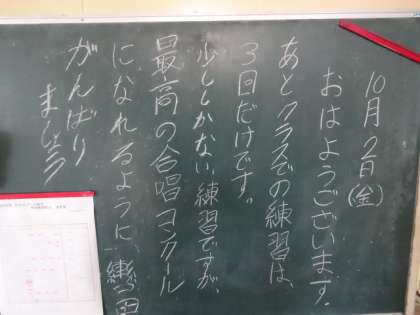 10月2日(金)
おはようございます。
あとクラスでの練習は、
3回だけです。
少ししかない練習ですが、
最高の合唱コンクール
になれるように、
がんばり
ましょう